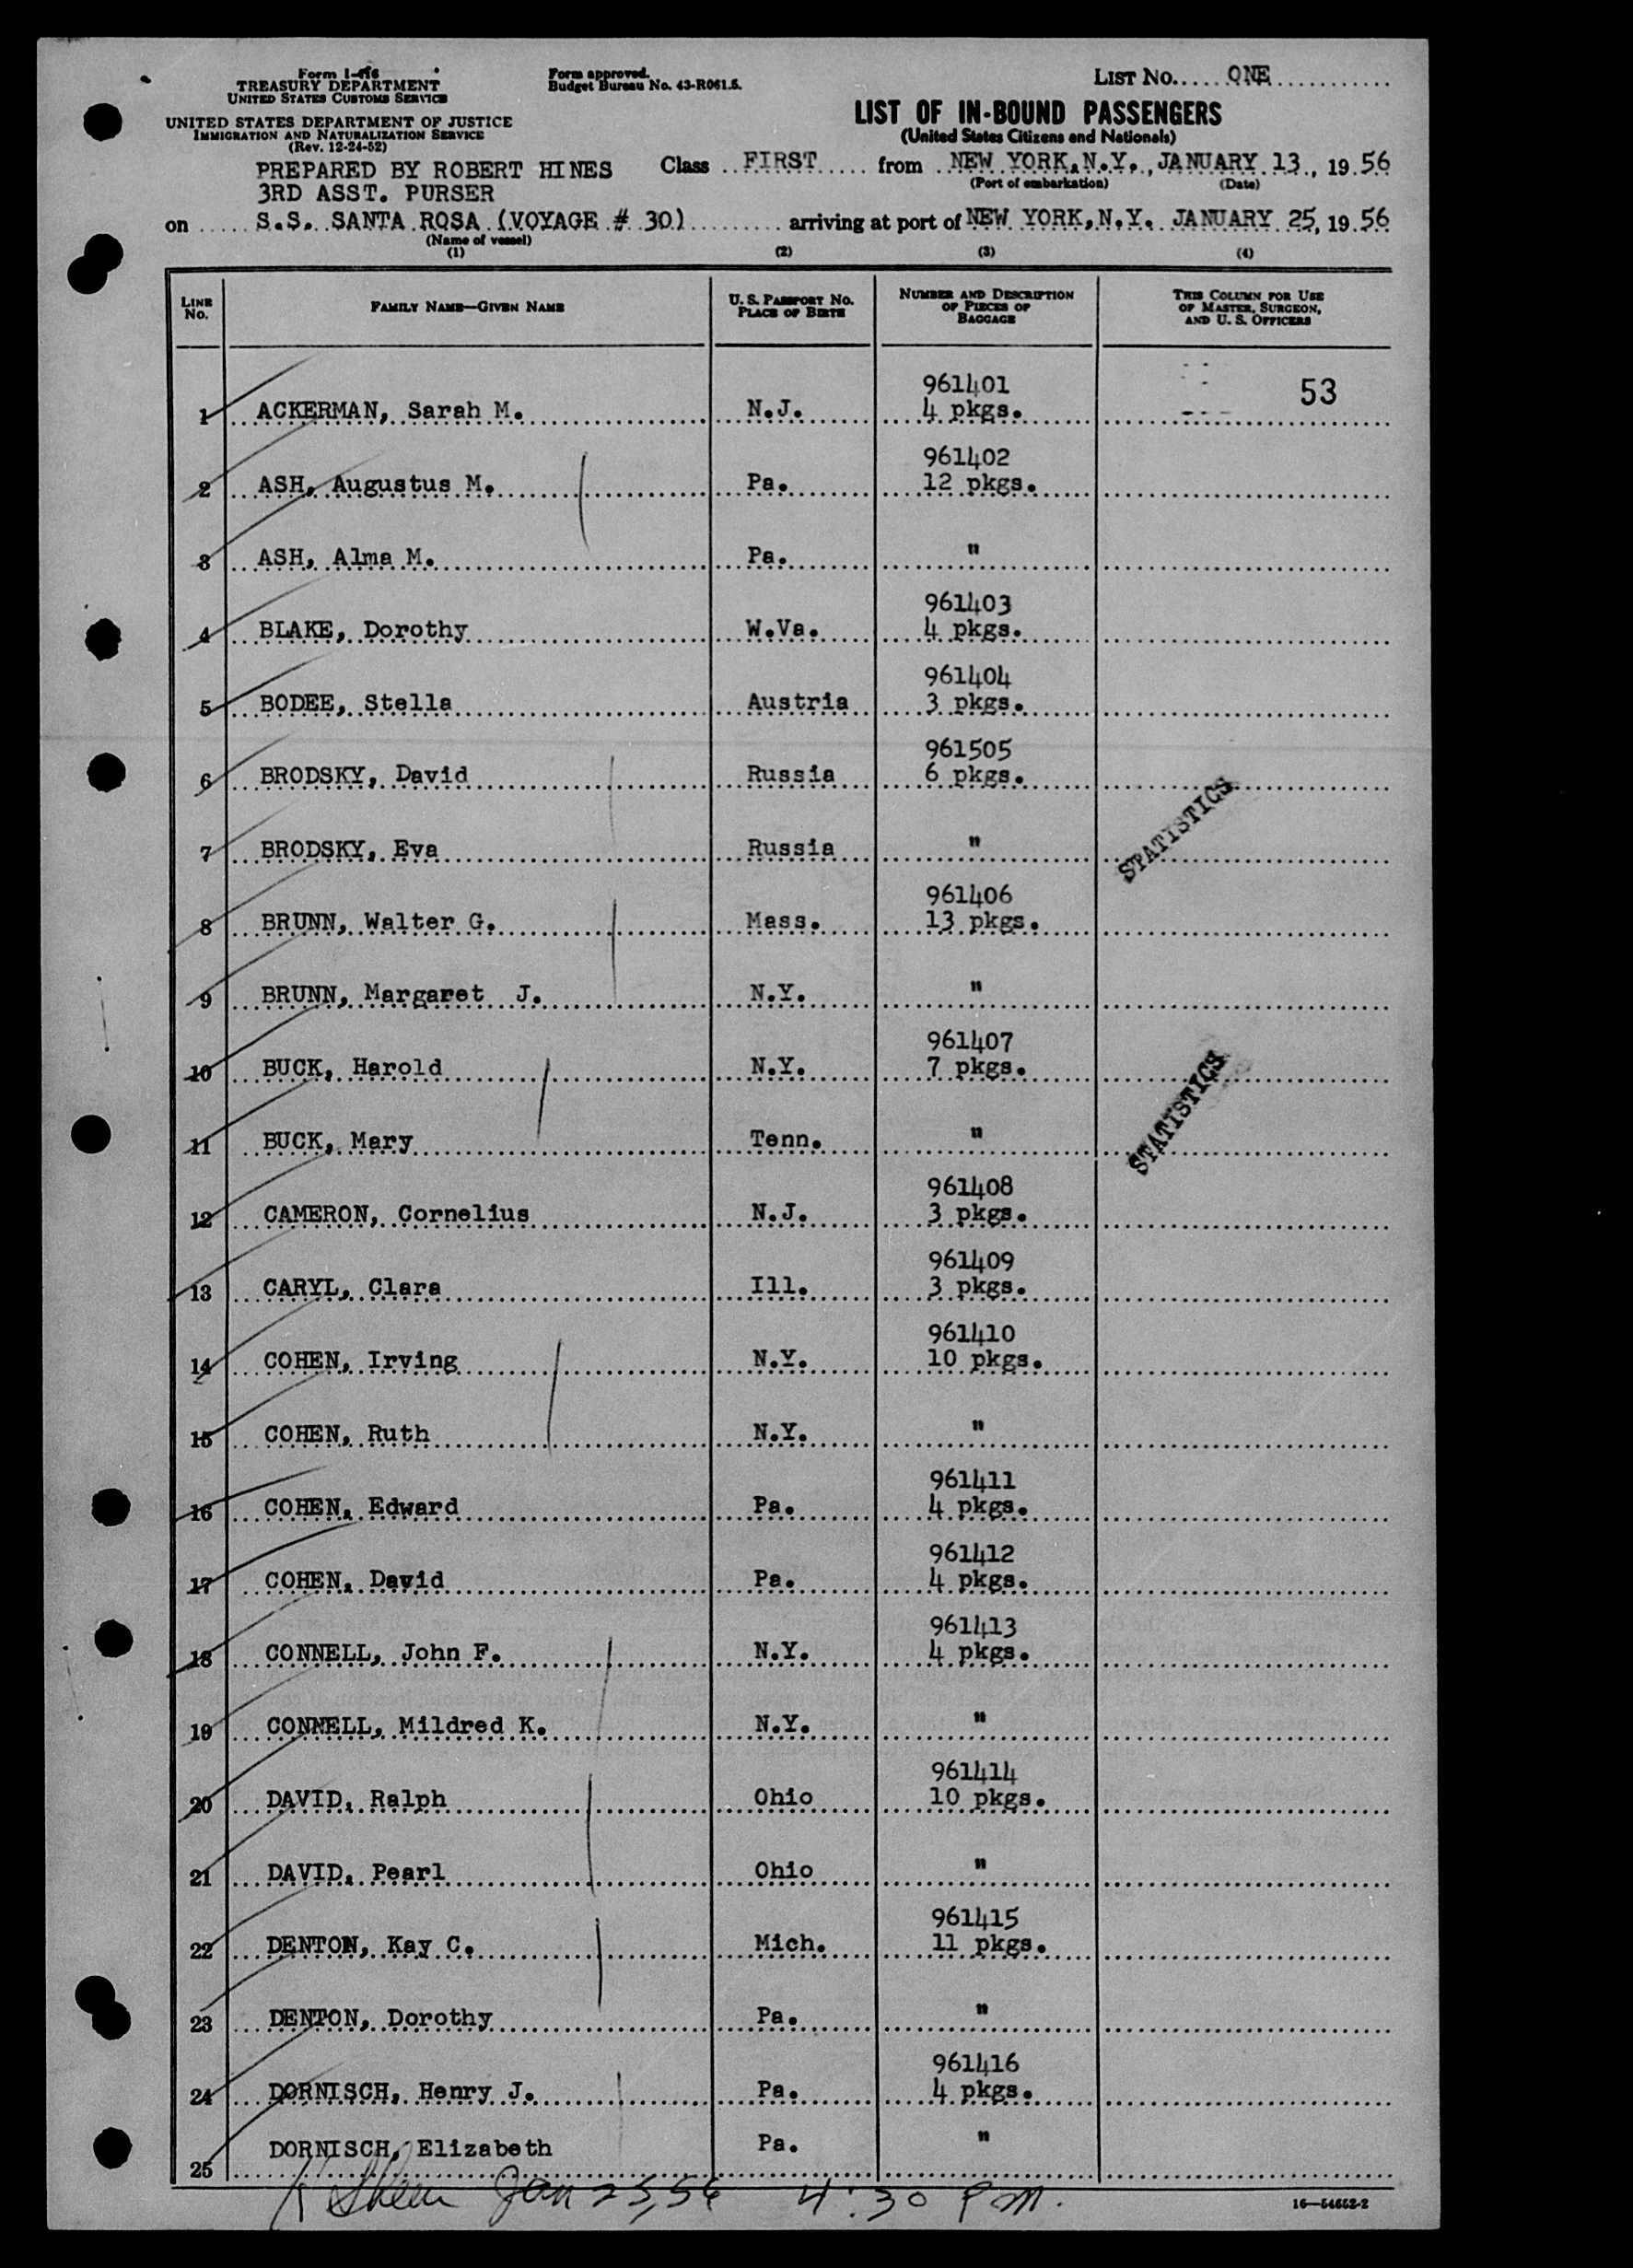 Form I-416
TREASURY DEPARTMENT
UNITED STATES CUSTOMS SERVICE
UNITED STATES DEPARTMENT OF JUSTICE
IMMIGRATION AND NATURALIZATION SERVICE
(Rev. 12-24-52)
Form approved.
Budget Bureau No. 43-R061.5.
LIST No. ONE
LIST OF IN-BOUND PASSENGERS
(United States Citizens and Nationals)
PREPARED BY ROBERT HINES
3RD ASST. PURSER
Class FIRST from NEW YORK, N.Y., JANUARY 13, 19 56
(Port of embarkation) (Date)
on S.S. SANTA ROSA (VOYAGE # 30) arriving at port of NEW YORK, N.Y. JANUARY 25, 19 56
(Name of vessel)
(1) (2) (3) (4)
LINE No. FAMILY NAME—GIVEN NAME U. S. PASSPORT No. PLACE OF BIRTH NUMBER AND DESCRIPTION OF PIECES OF BAGGAGE THIS COLUMN FOR USE OF MASTER, SURGEON, AND U. S. OFFICERS
961401 53
1 ACKERMAN, Sarah M. N.J. 4 pkgs.
961402
2 ASH, Augustus M. Pa. 12 pkgs.
3 ASH, Alma M. Pa. "
961403
4 BLAKE, Dorothy W.Va. 4 pkgs.
961404
5 BODEE, Stella Austria 3 pkgs.
961505
6 BRODSKY, David Russia 6 pkgs.
7 BRODSKY, Eva Russia "
STATISTICS
961406
8 BRUNN, Walter G. Mass. 13 pkgs.
9 BRUNN, Margaret J. N.Y. "
961407
10 BUCK, Harold N.Y. 7 pkgs.
11 BUCK, Mary Tenn. "
STATISTICS
961408
12 CAMERON, Cornelius N.J. 3 pkgs.
961409
13 CARYL, Clara Ill. 3 pkgs.
961410
14 COHEN, Irving N.Y. 10 pkgs.
15 COHEN, Ruth N.Y. "
961411
16 COHEN, Edward Pa. 4 pkgs.
961412
17 COHEN, David Pa. 4 pkgs.
961413
18 CONNELL, John F. N.Y. 4 pkgs.
19 CONNELL, Mildred K. N.Y. "
961414
20 DAVID, Ralph Ohio 10 pkgs.
21 DAVID, Pearl Ohio "
961415
22 DENTON, Kay C. Mich. 11 pkgs.
23 DENTON, Dorothy Pa. "
961416
24 DORNISCH, Henry J. Pa. 4 pkgs.
25 DORNISCH, Elizabeth Pa. "
Jan 25, 56 4:30 PM.
16—54652-2